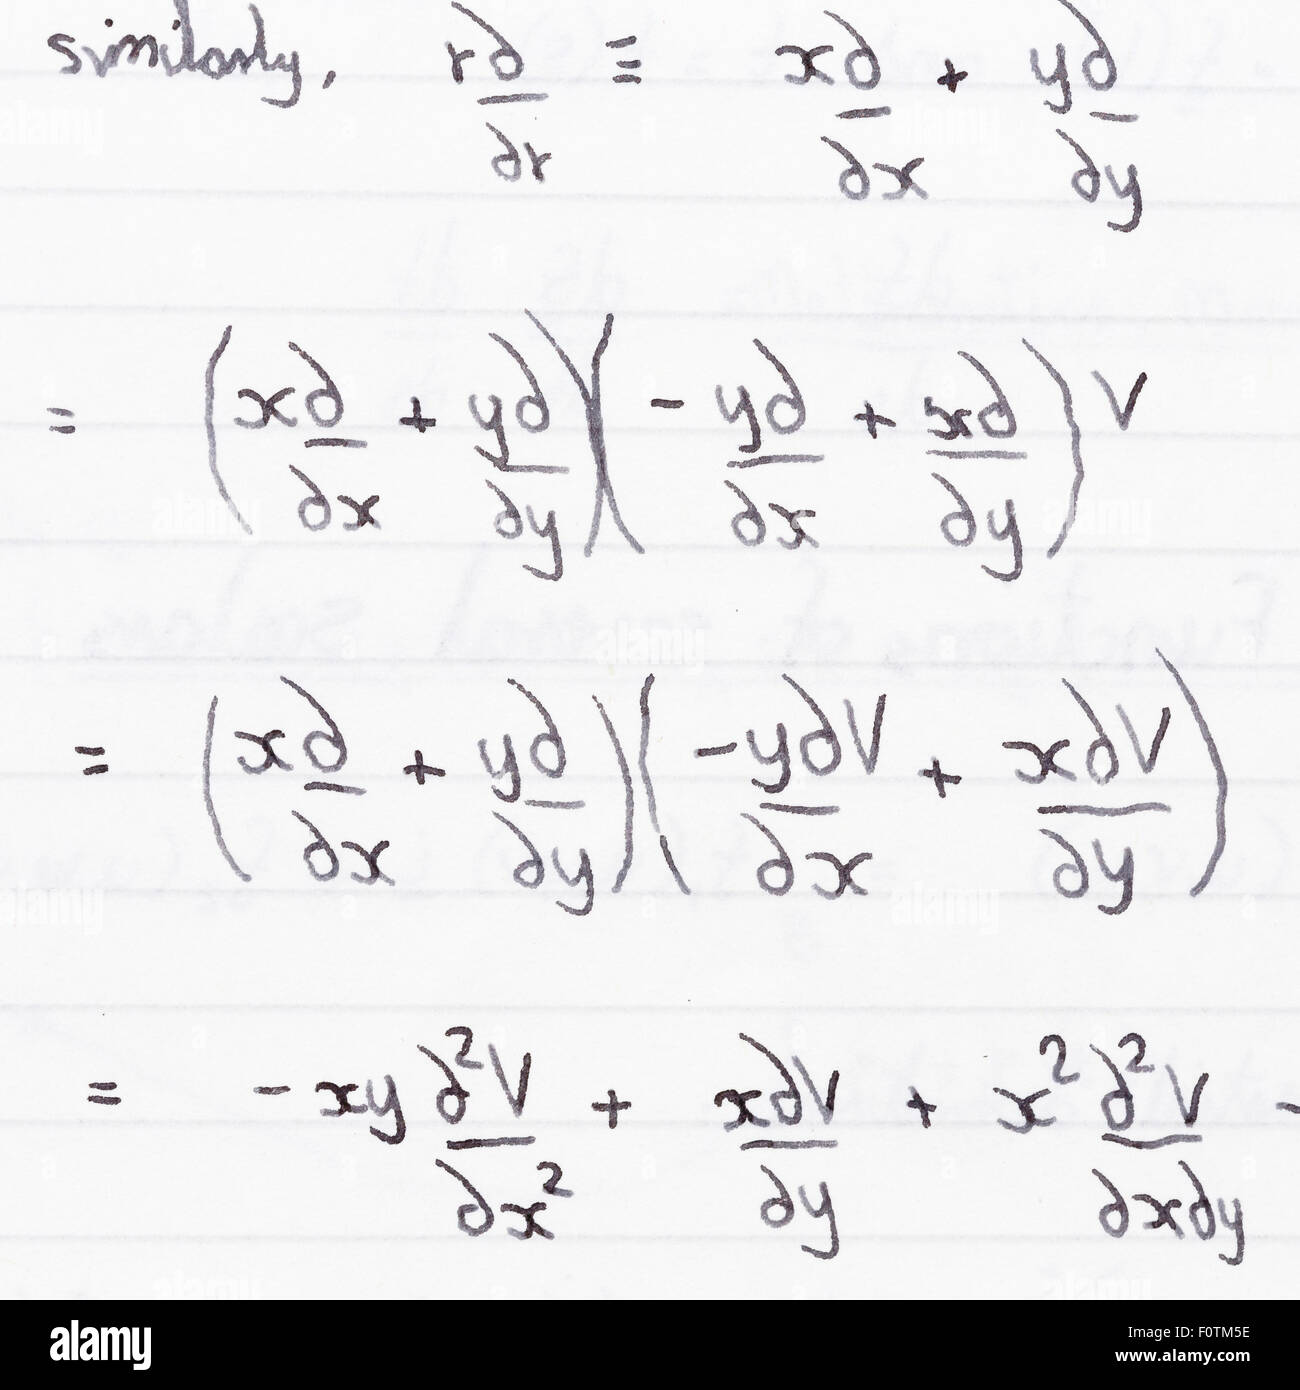 similarly, r∂/∂r ≡ x∂/∂x + y∂/∂y
= (x∂/∂x + y∂/∂y)(-y∂/∂x + x∂/∂y)V
= (x∂/∂x + y∂/∂y)(-y∂V/∂x + x∂V/∂y)
= -xy ∂²V/∂x² + x∂V/∂y + x² ∂²V/∂x∂y -
alamy
Image ID: F0TM5E
www.alamy.com